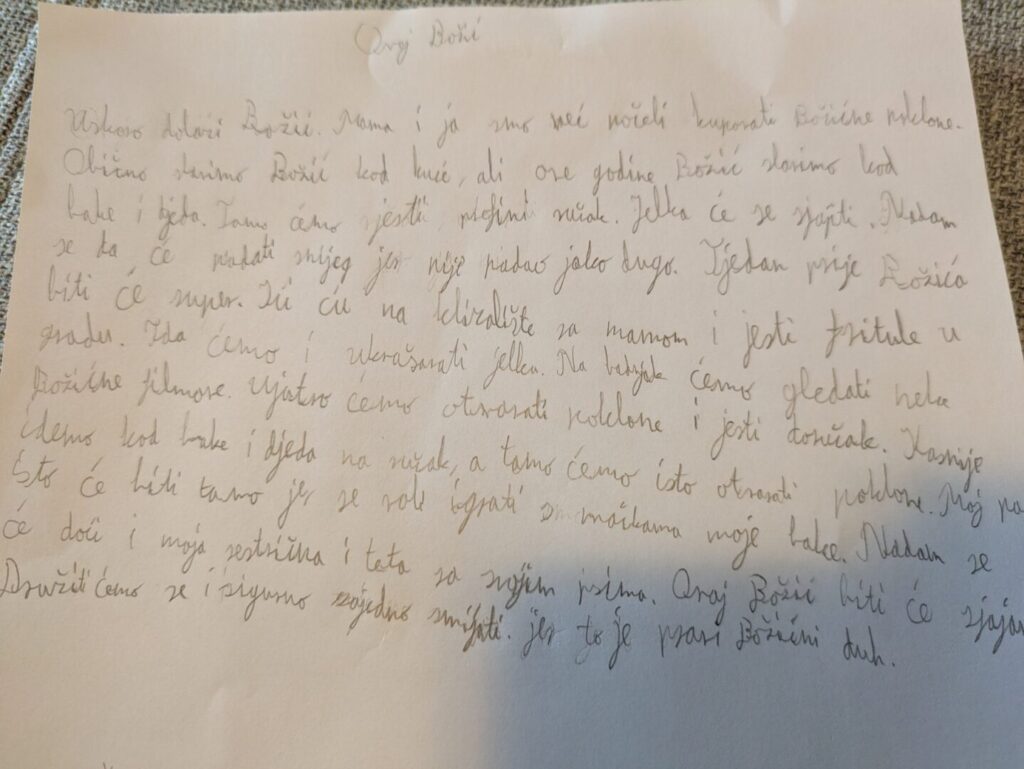 Ovaj Božić
Uskoro dolazi Božić. Mama i ja smo već počeli kupovati Božićne poklone.
Obično slavimo Božić kod kuće, ali ove godine Božić slavimo kod
bake i djeda. Tamo ćemo jesti ručak. Jelka će se sjajiti. Nadam
se da će padati snijeg jer nije padao jako dugo. Tjedan prije Božića
biti će super. Ići ću na klizalište sa mamom i jesti fritule u
gradu. Tada ćemo i ukrašavati jelku. Na badnjak ćemo gledati neke
Božićne filmove. Ujutro ćemo otvarati poklone i jesti doručak. Kasnije
idemo kod bake i djeda na ručak, a tamo ćemo isto otvarati poklone. Moj pas
isto će biti tamo jer se voli igrati sa mačkama moje bake. Nadam se
će doći i moja sestrična i tata sa svojim psima. Ovaj Božić biti će sjajan
Družiti ćemo se i sigurno zajedno smijati. jer to je pravi Božićni duh.